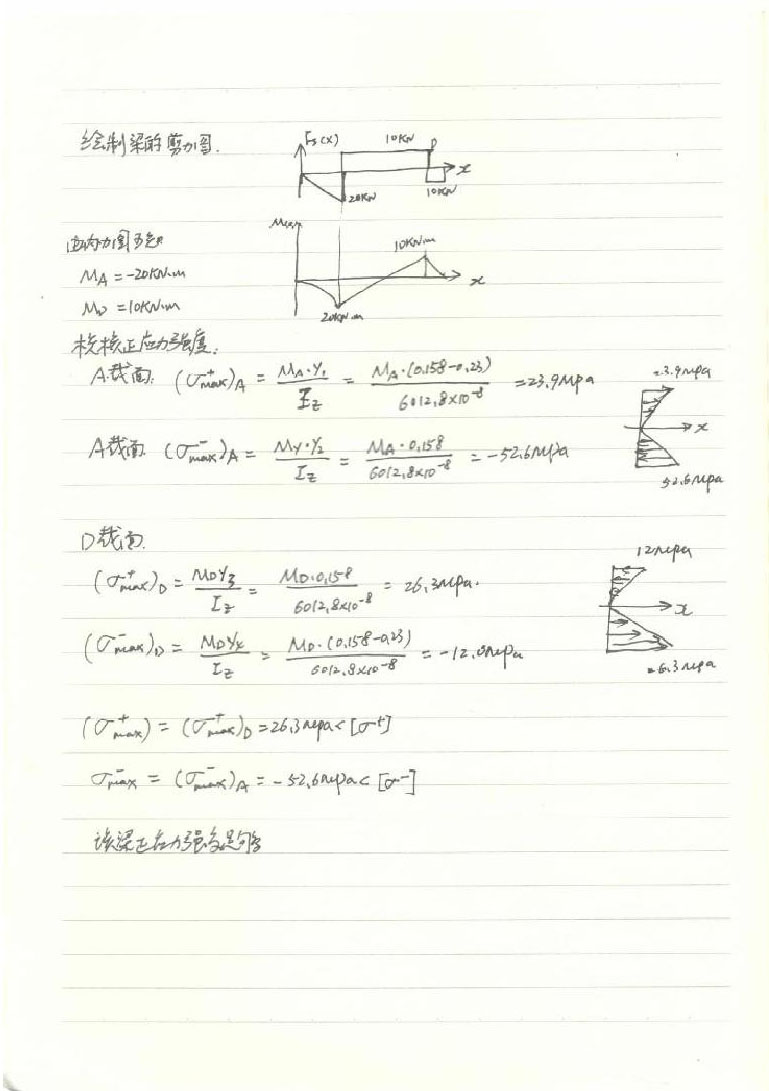 绘制梁的剪力图.
Fs(x)
10KN
P
x
20KN
10KN
M(x)
由内力图可知
10KN·m
MA = -20KN·m
x
MD = 10KN·m
20KN·m
校核正应力强度:
A截面: (σ⁺max)A = MA·y₁/Iz = MA·(0.158-0.23)/6012.8×10⁻⁸ = 23.9Mpa
23.9Mpa
x
A截面 (σ⁻max)A = My·y₂/Iz = MA·0.158/6012.8×10⁻⁸ = -52.6Mpa
52.6Mpa
D截面.
12Mpa
(σ⁺max)D = MDy₃/Iz = MD·0.158/6012.8×10⁻⁸ = 26.3Mpa.
x
(σ⁻max)D = MDy₄/Iz = MD·(0.158-0.23)/6012.8×10⁻⁸ = -12.0Mpa
26.3Mpa
(σ⁺max) = (σ⁺max)D = 26.3Mpa < [σ⁺]
σ⁻max = (σ⁻max)A = -52.6Mpa < [σ⁻]
该梁正应力强度足够